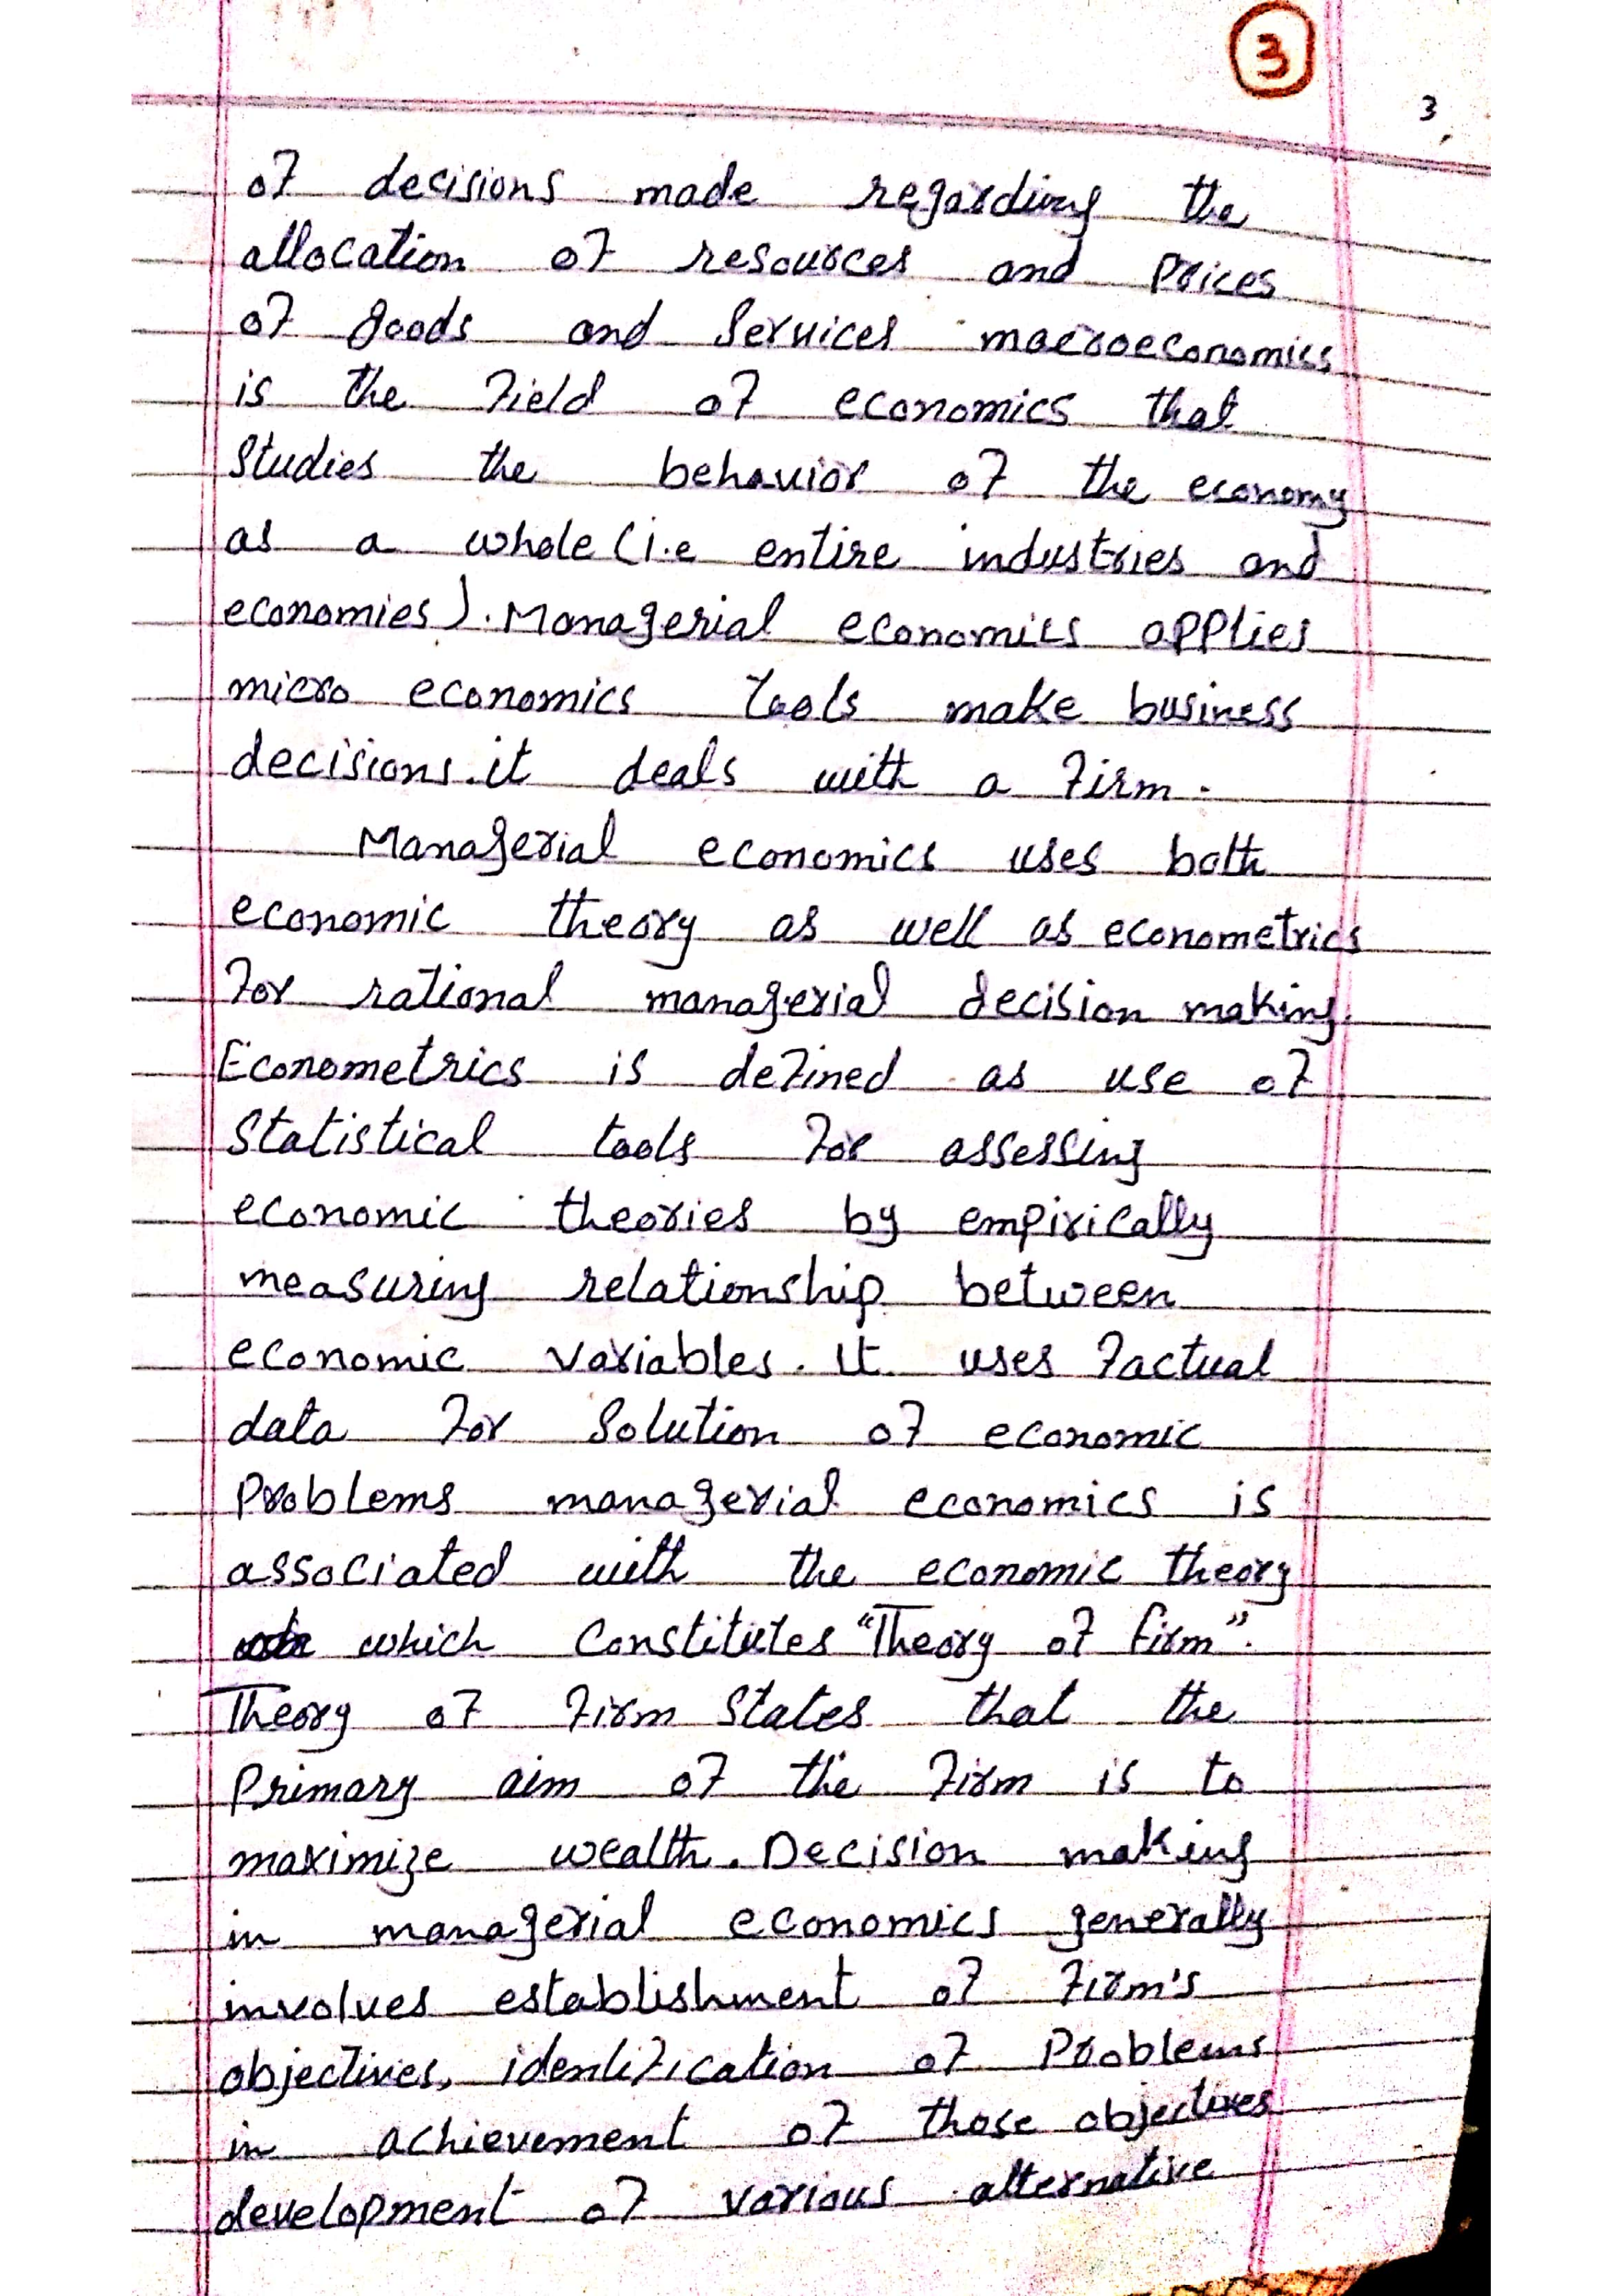 3
3,
of decisions made regarding the
allocation of resources and prices
of goods and Services macroeconomics
is the field of economics that
Studies the behavior of the economy
as a whole (i.e entire industries and
economies). Managerial economics applies
micro economics tools make business
decisions.it deals with a firm.
Managerial economics uses both
economic theory as well as econometrics
for rational managerial decision making.
Econometrics is defined as use of
Statistical tools for assessing
economic theories by empirically
measuring relationship between
economic variables. It uses factual
data for Solution of economic
Problems managerial economics is
associated with the economic theory
which Constitutes "Theory of firm".
Theory of firm States that the
Primary aim of the firm is to
maximize wealth. Decision making
in managerial economics generally
involves establishment of firm's
objectives, identification of Problems
in achievement of those objectives
development of various alternative